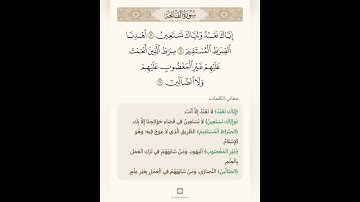 سُورَةُ الفَاتِحَةِ
إِيَّاكَ نَعْبُدُ وَإِيَّاكَ نَسْتَعِينُ ۝ ٱهْدِنَا
ٱلصِّرَٰطَ ٱلْمُسْتَقِيمَ ۝ صِرَٰطَ ٱلَّذِينَ أَنْعَمْتَ
عَلَيْهِمْ غَيْرِ ٱلْمَغْضُوبِ عَلَيْهِمْ
وَلَا ٱلضَّآلِّينَ ۝
معاني الكلمات
﴿إِيَّاكَ نَعْبُدُ﴾ لَا نَعْبُدُ إِلَّا أَنْتَ.
﴿وَإِيَّاكَ نَسْتَعِينُ﴾ لَا نَسْتَعِينُ فِي قَضَاءِ حَوَائِجِنَا إِلَّا بِكَ.
﴿الصِّرَاطَ الْمُسْتَقِيمَ﴾ الطَّرِيقَ الَّذِي لَا عِوَجَ فِيهِ؛ وَهُوَ
الْإِسْلَامُ.
﴿غَيْرِ الْمَغْضُوبِ﴾ الْيَهُودِ، وَمَنْ شَابَهَهُمْ فِي تَرْكِ الْعَمَلِ
بِالْعِلْمِ.
﴿الضَّالِّينَ﴾ النَّصَارَى، وَمَنْ شَابَهَهُمْ فِي الْعَمَلِ بِغَيْرِ عِلْمٍ.